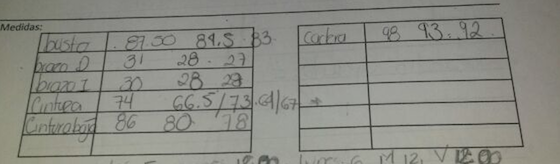 Medidas:
busto 87.50 84.5 83
brazo D 31 28 . 27
brazo I 30 28 28
Cintura 74 66.5/73.64/67
Cintura baja 86 80 78
Cadera 98 93. 92
M 12, V 12:00